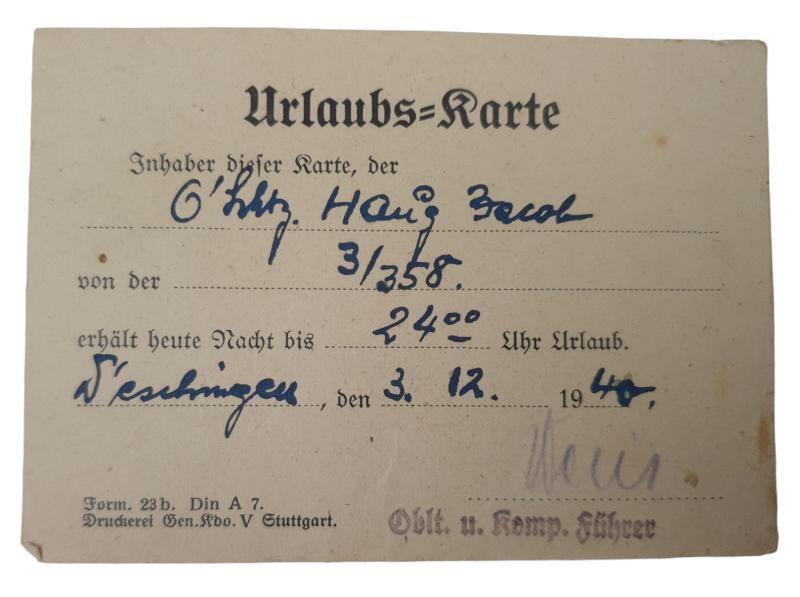 Urlaubs=Karte
Inhaber dieser Karte, der
O'Schtz. Haug Jacob
von der 3/358.
erhält heute Nacht bis 24 00 Uhr Urlaub.
D'eschingen, den 3. 12. 1940.
Form. 23 b. Din A 7.
Druckerei Gen. Kdo. V Stuttgart.
Oblt. u. Komp. Führer